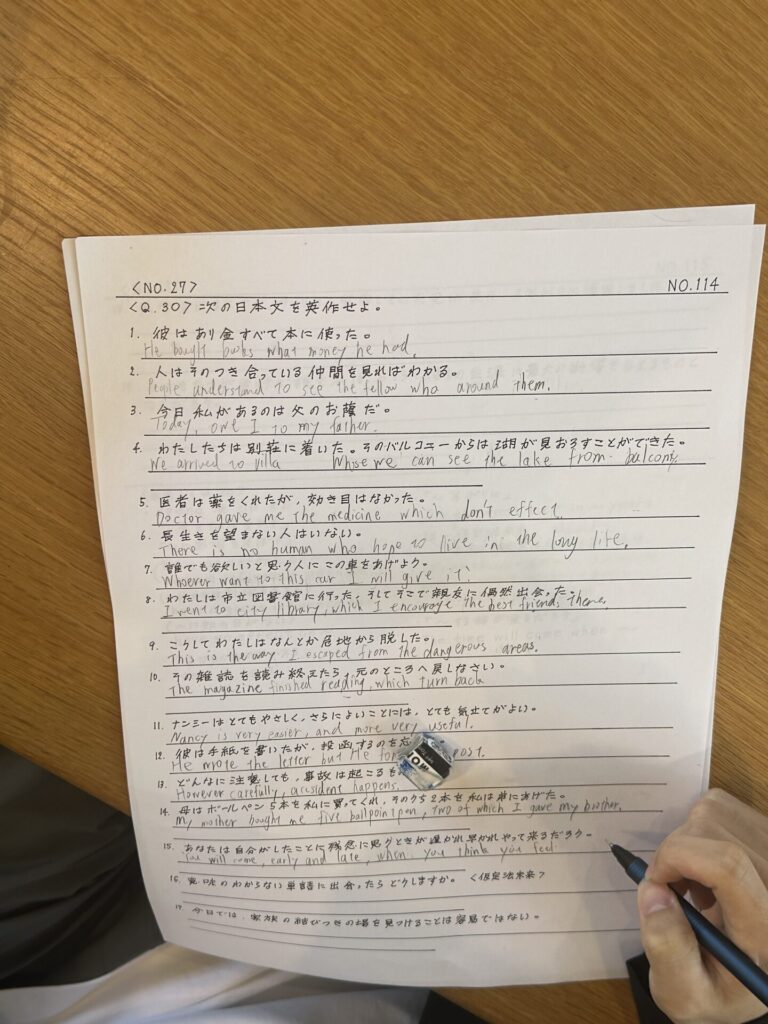 <NO.27> NO.114
<Q.30> 次の日本文を英作せよ。
1. 彼はあり金すべて本に使った。
He bought books what money he had.
2. 人はそのつき合っている仲間を見ればわかる。
People understand to see the fellow who around them.
3. 今日私があるのは父のお蔭だ。
Today, owe I to my father.
4. わたしたちは別荘に着いた。そのバルコニーからは湖が見おろすことができた。
We arrived to villa we can see the lake from balcony
5. 医者は薬をくれたが，効き目はなかった。
Doctor gave me the medicine which don't effect.
6. 長生きを望まない人はいない。
There is no human who hope to live in the long life.
7. 誰でも欲しいと思う人にこの車をあげよう。
Whoever want to this car I will give it.
8. わたしは市立図書館に行った，そしてそこで親友に偶然出会った。
I went to city library, which I encourage the best friends
9. こうしてわたしはなんとか危地から脱した。
This is the way I escaped from the dangerous areas.
10. その雑誌を読み終えたら，元のところへ戻しなさい。
The magazine finished reading, which turn back
11. ナンシーはとてもやさしく，さらによいことには，とても気立てがよい。
Nancy is very easier, and more very useful.
12. 彼は手紙を書いたが，投函するのを忘
He wrote the letter but He for post.
13. どんなに注意しても，事故は起こる
However carefully, accsident happens.
14. 母はボールペン5本を私に買ってくれ，そのうち2本を私は弟にあげた。
My mother bought me five ballpoint pen, two of which I gave my brother.
15. あなたは自分がしたことに残念に思うときが遅かれ早かれやって来るだろう。
You will come, early and late, when you think you feel
16. 意味のわからない単語に出会ったらどうしますか。 <仮定法未来>
17. 今日では，家族の結びつきの場を見つけることは容易ではない。